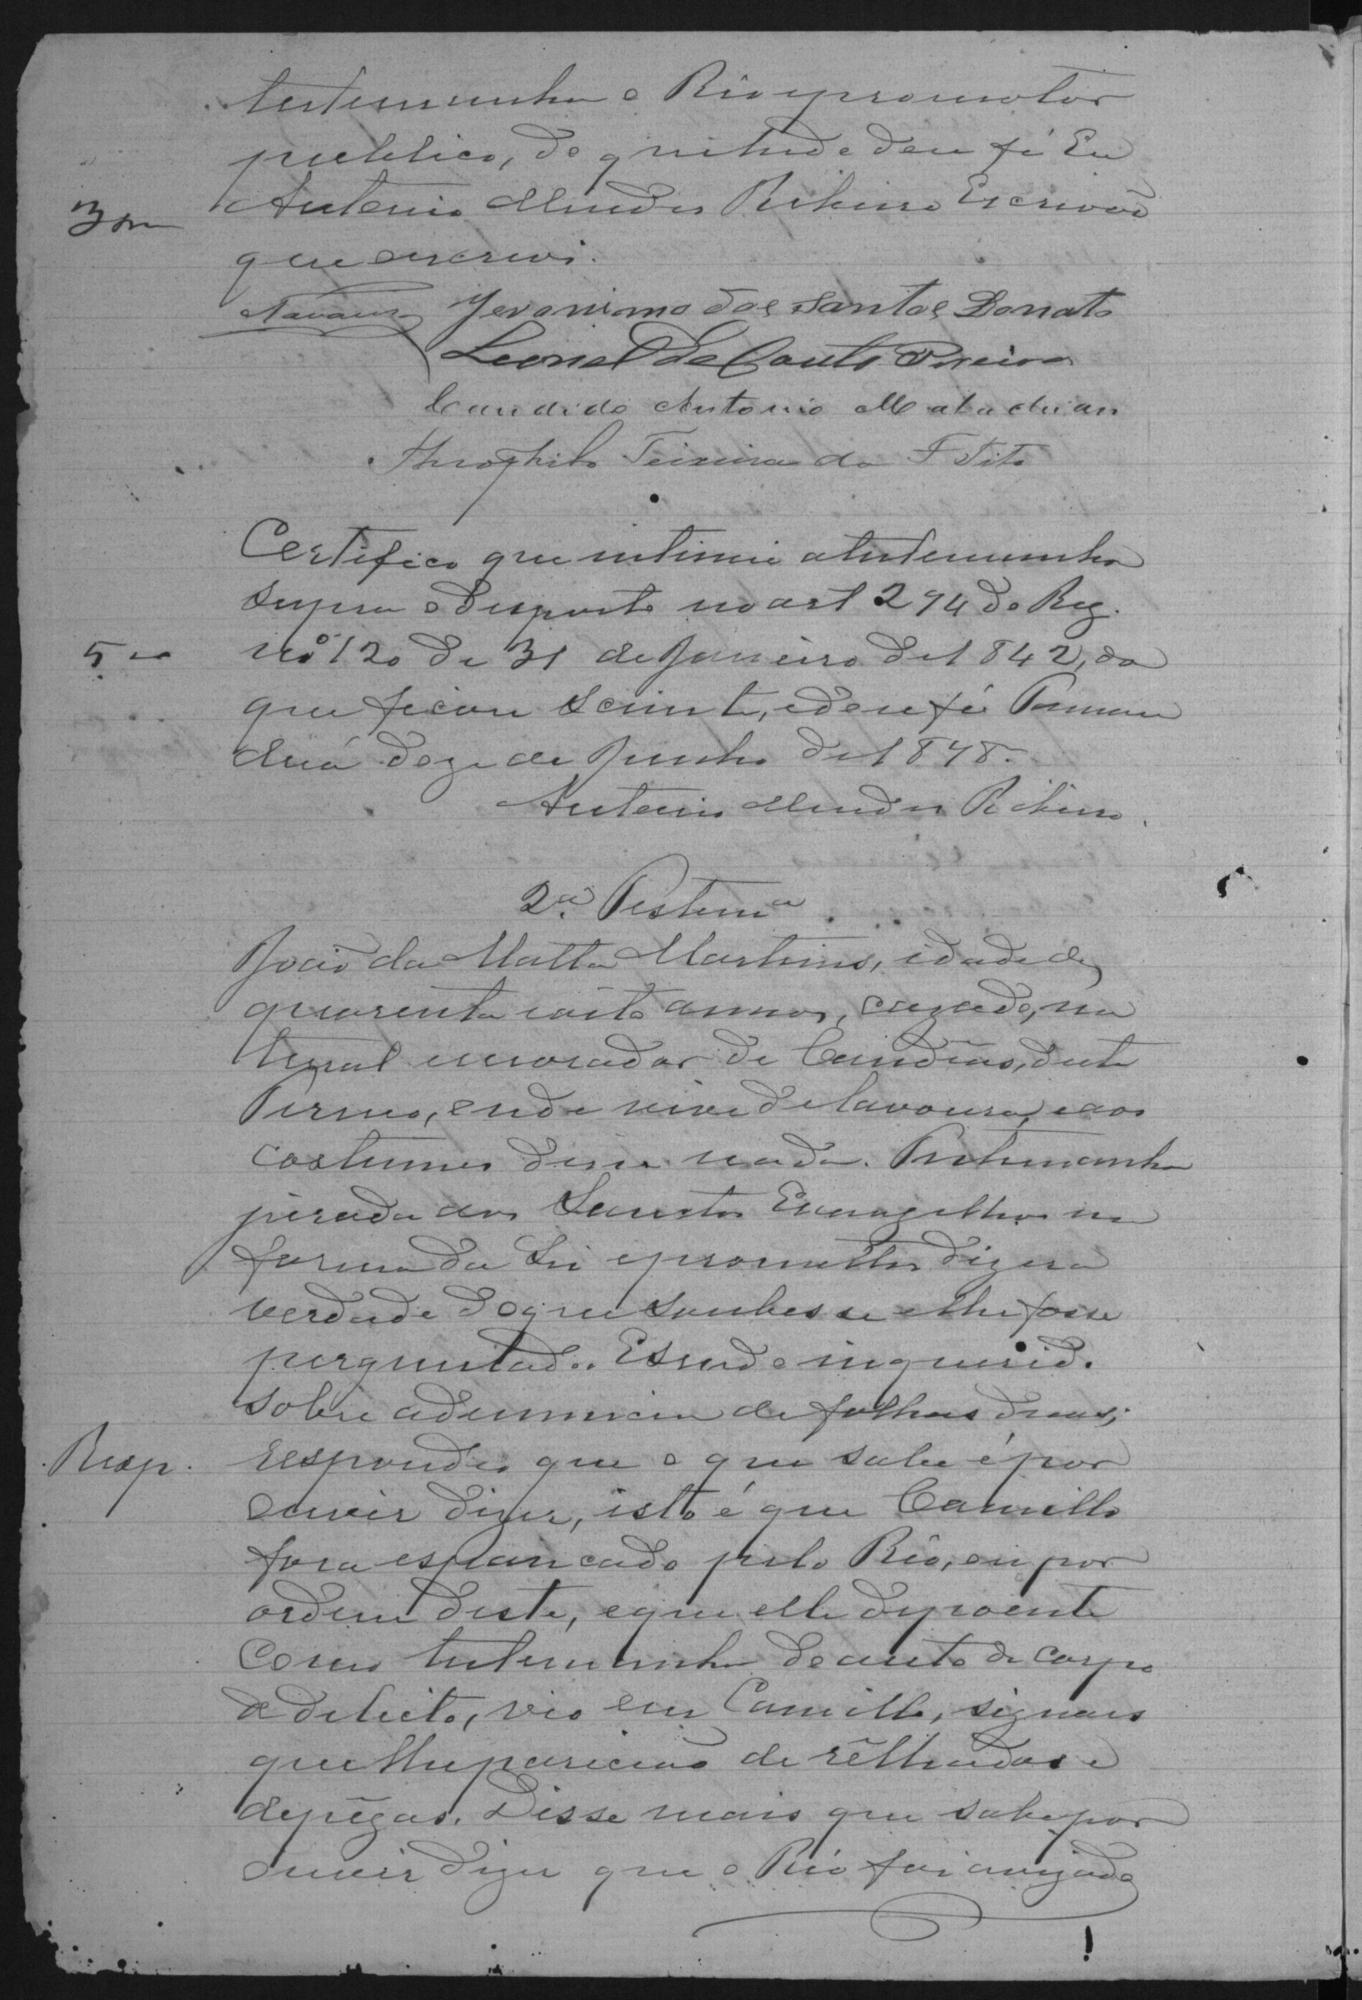 testemunha o Réo e promotor
publico, do que tudo dou fé Eu
Antonio Mendes Ribeiro Escrivão
que escrevi.
Jeronimo dos Santos Donato
Leonel do Couto Pereira
Candido Antonio
Theophilo Teixeira da F Tito
Certifico que intimei a testemunha
supra o disposto no art 294 do Reg.
nº 120 de 31 de Janeiro de 1842, do
que ficou sciente, e dou fé
doze de Junho de 1878.
Antonio Mendes Ribeiro.
2ª. Testemª
João da Matta Martins, idade de
quarenta e oito annos, cazado, na
tural e morador de Candêas, deste
Termo, onde vive de lavoura, e aos
costumes disse nada. Testemunha
jurada aos Sanctos Evangelhos na
forma da Lei e prometteu dizer a
verdade do que soubesse e lhe fosse
perguntado. E sendo inquerido
sobre a denuncia de folhas duas;
Resp. respondeo que o que sabe é por
ouvir dizer, isto é que Camillo
fora espancado pelo Réo, ou por
ordem deste, e que elle depoente
como testemunha do auto de corpo
de delicto, vio em Camillo, signaes
que lhe parecião de rêlhadas e
de pêgas. Disse mais que sabe por
ouvir dizer que o Réo foi avizado